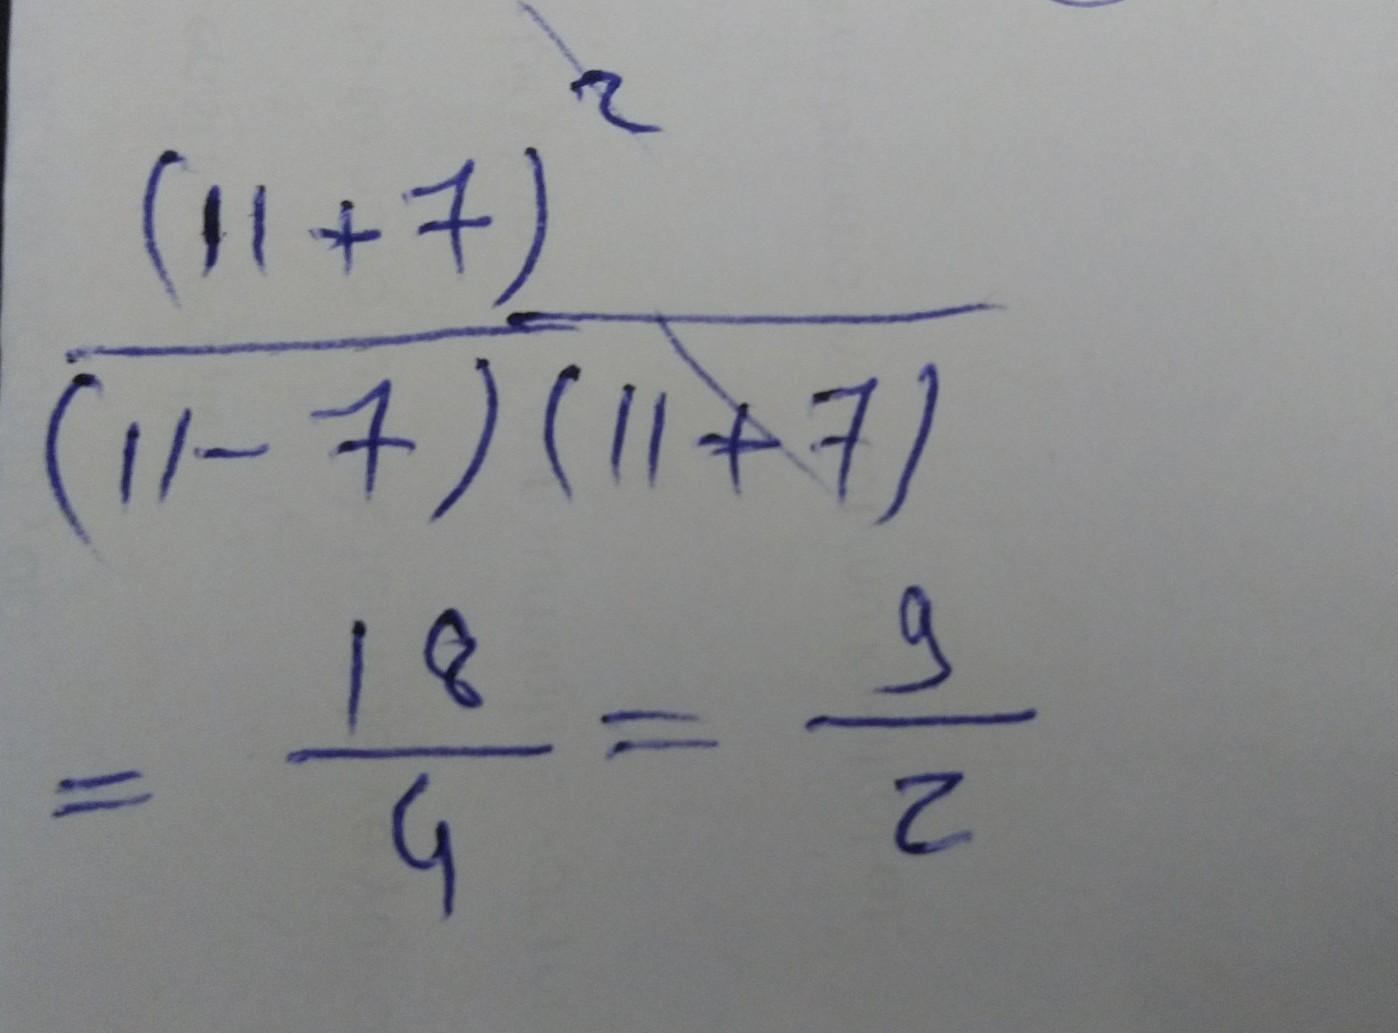 (11+7)²
(11-7)(11+7)
= 18/4 = 9/2